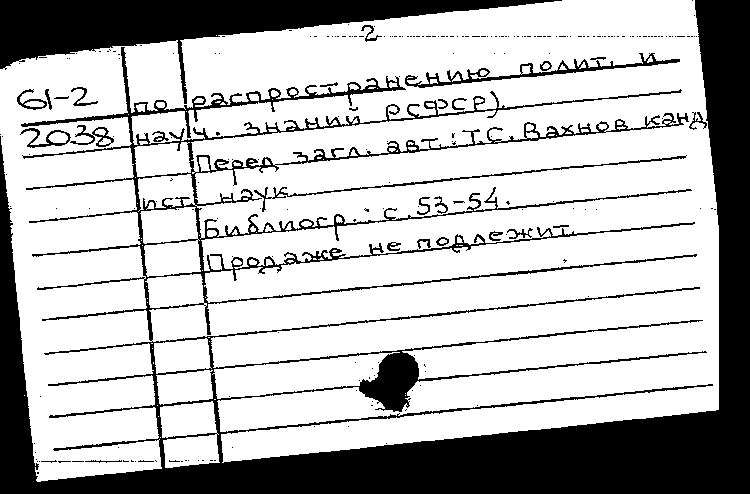 2
61-2 по распространению полит. и
2038 науч. знаний РСФСР).
Перед загл. авт.: Т.С. Вахнов канд
ист. наук.
Библиогр.: с. 53-54.
Продаже не подлежит.